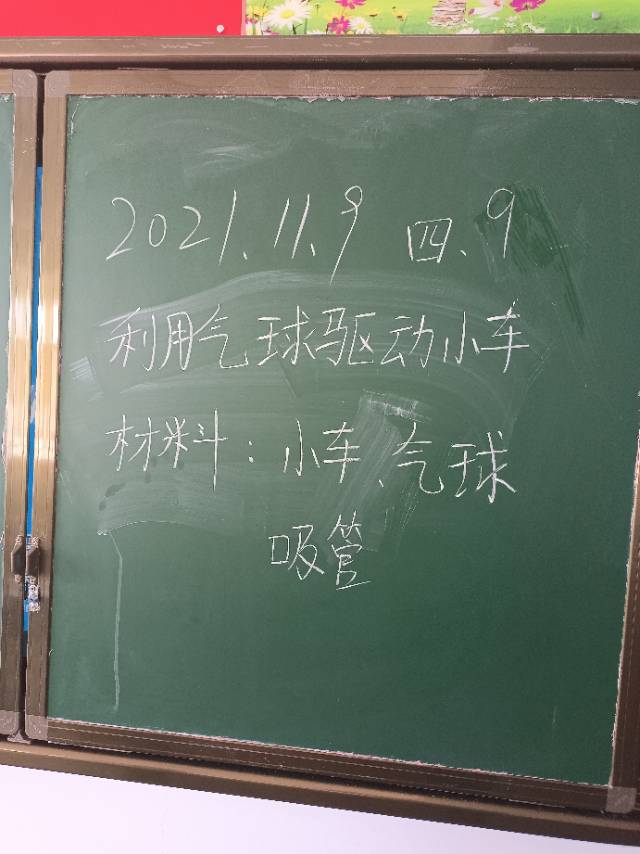 2021.11.9 四.9
利用气球驱动小车
材料：小车、气球
吸管